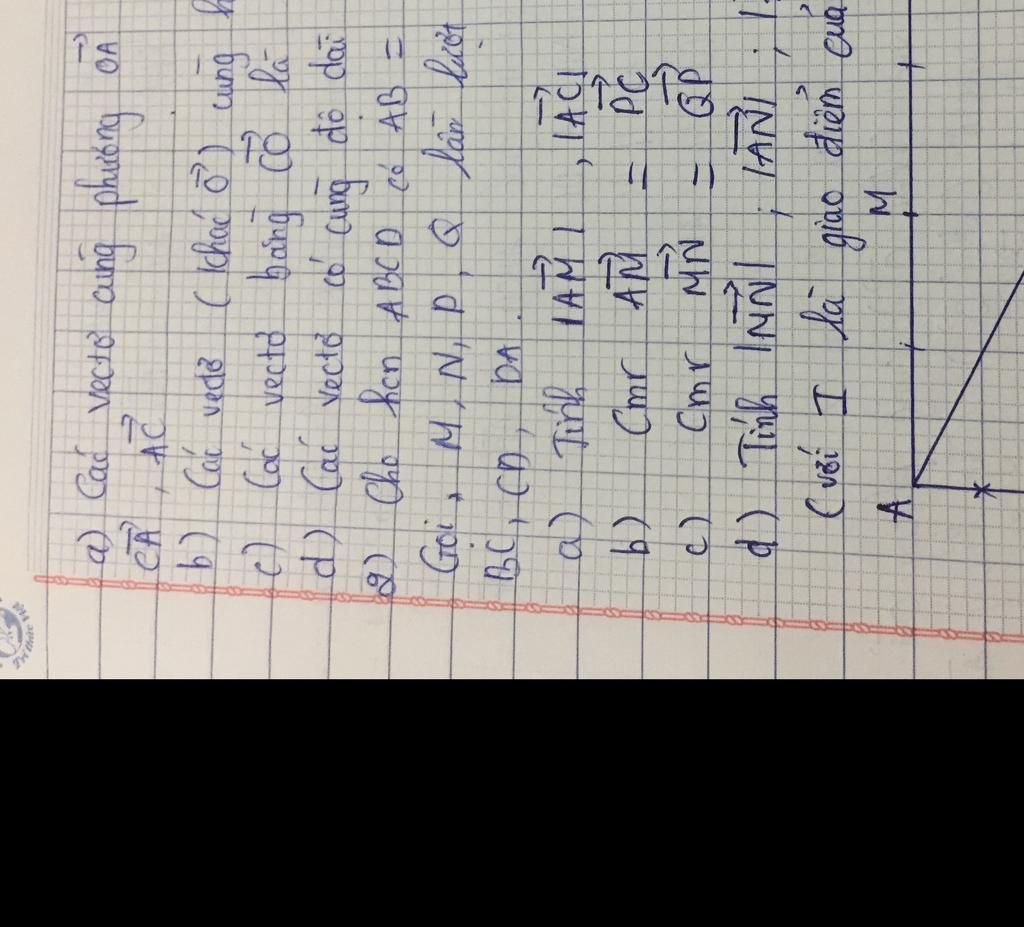 a) Các vectơ cùng phương OA
CA, AC
b) Các vectơ (khác O) cùng
c) Các vectơ bằng CO là
d) Các vectơ có cùng độ dài
2) Cho hcn ABCD có AB =
Gọi, M, N, P, Q lần lượt
BC, CD, DA.
a) Tính |AM|, |AC|
b) Cmr AM = PC
c) Cmr MN = QP
d) Tính |NN| ; |AN| ; |
(với I là giao điểm của
A M